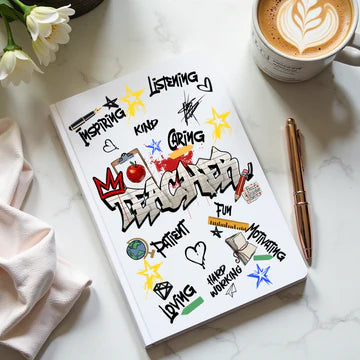 LISTENING
INSPIRING
KIND
CARING
TEACHER
FUN
PATIENT
MOTIVATING
HARD
WORKING
LOVING